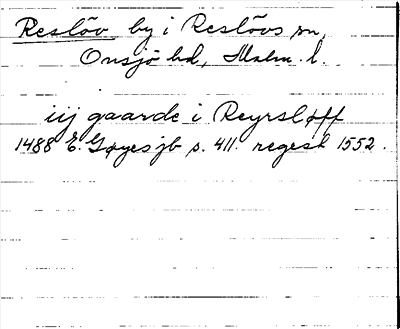 Reslöv by i Reslövs sn,
Onsjö hd, Malm. l.
iij gaarde i Reyrsløff
1488 E. Gøyes jb s. 411. regest 1552.